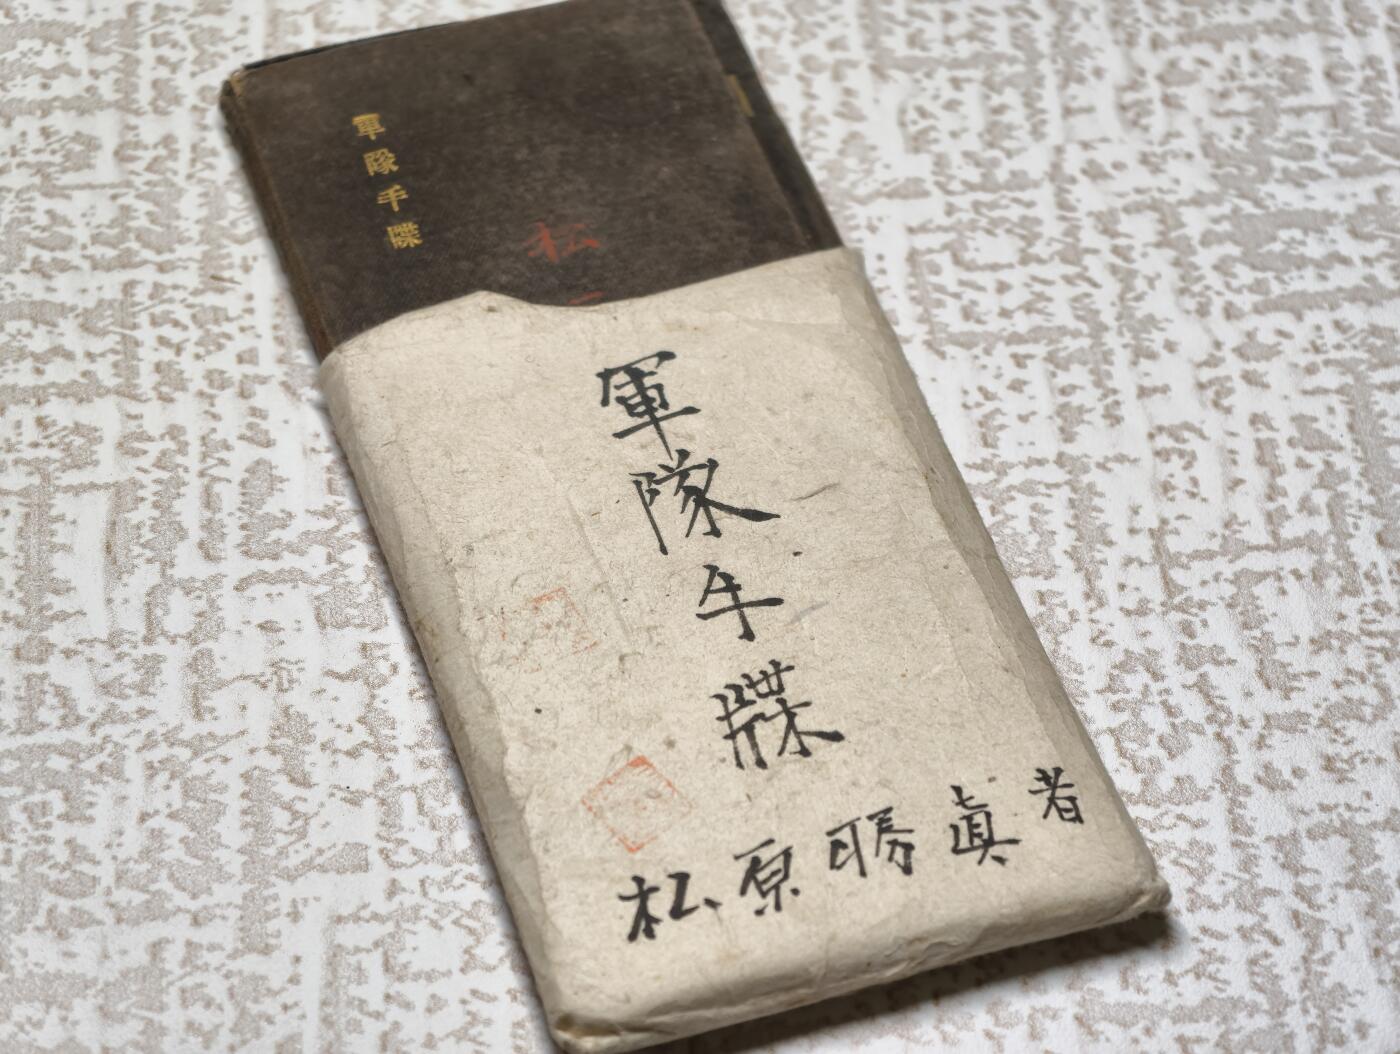 軍隊手牒
松
軍隊手牒
松原勝眞
者